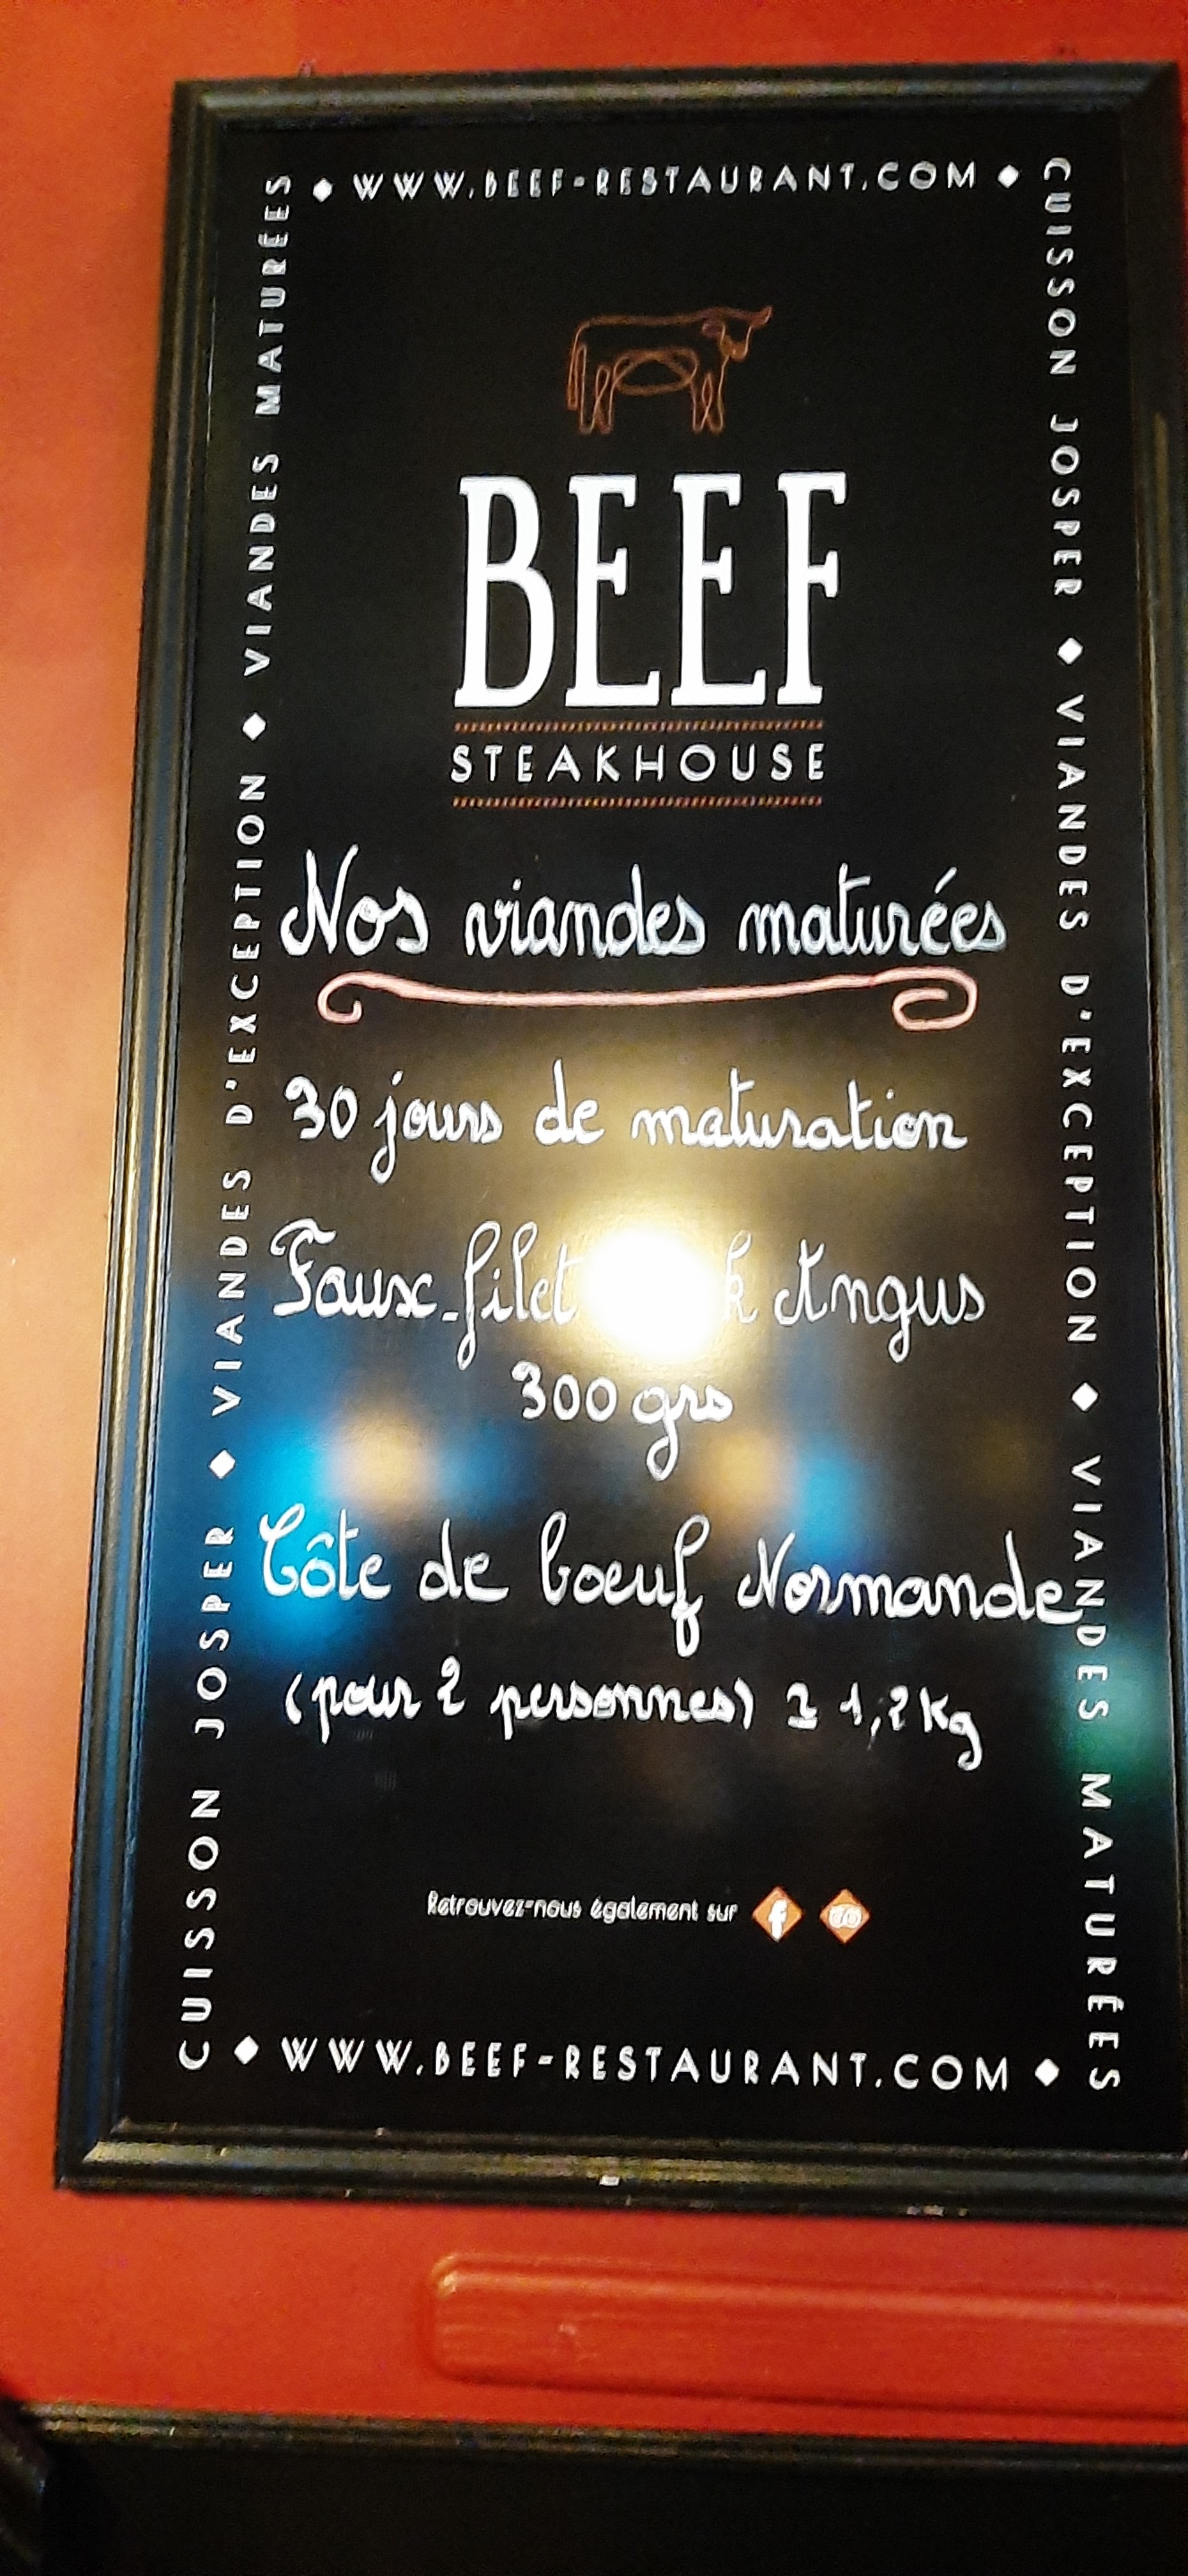 WWW.BEEF-RESTAURANT.COM
CUISSON JOSPER ◆ VIANDES D'EXCEPTION ◆ VIANDES MATURÉES
CUISSON JOSPER ◆ VIANDES D'EXCEPTION ◆ VIANDES MATURÉES
BEEF
STEAKHOUSE
Nos viandes maturées
30 jours de maturation
Faux-filet Angus
300 grs
Côte de boeuf Normande
(pour 2 personnes) 1,2 Kg
Retrouvez-nous également sur
WWW.BEEF-RESTAURANT.COM